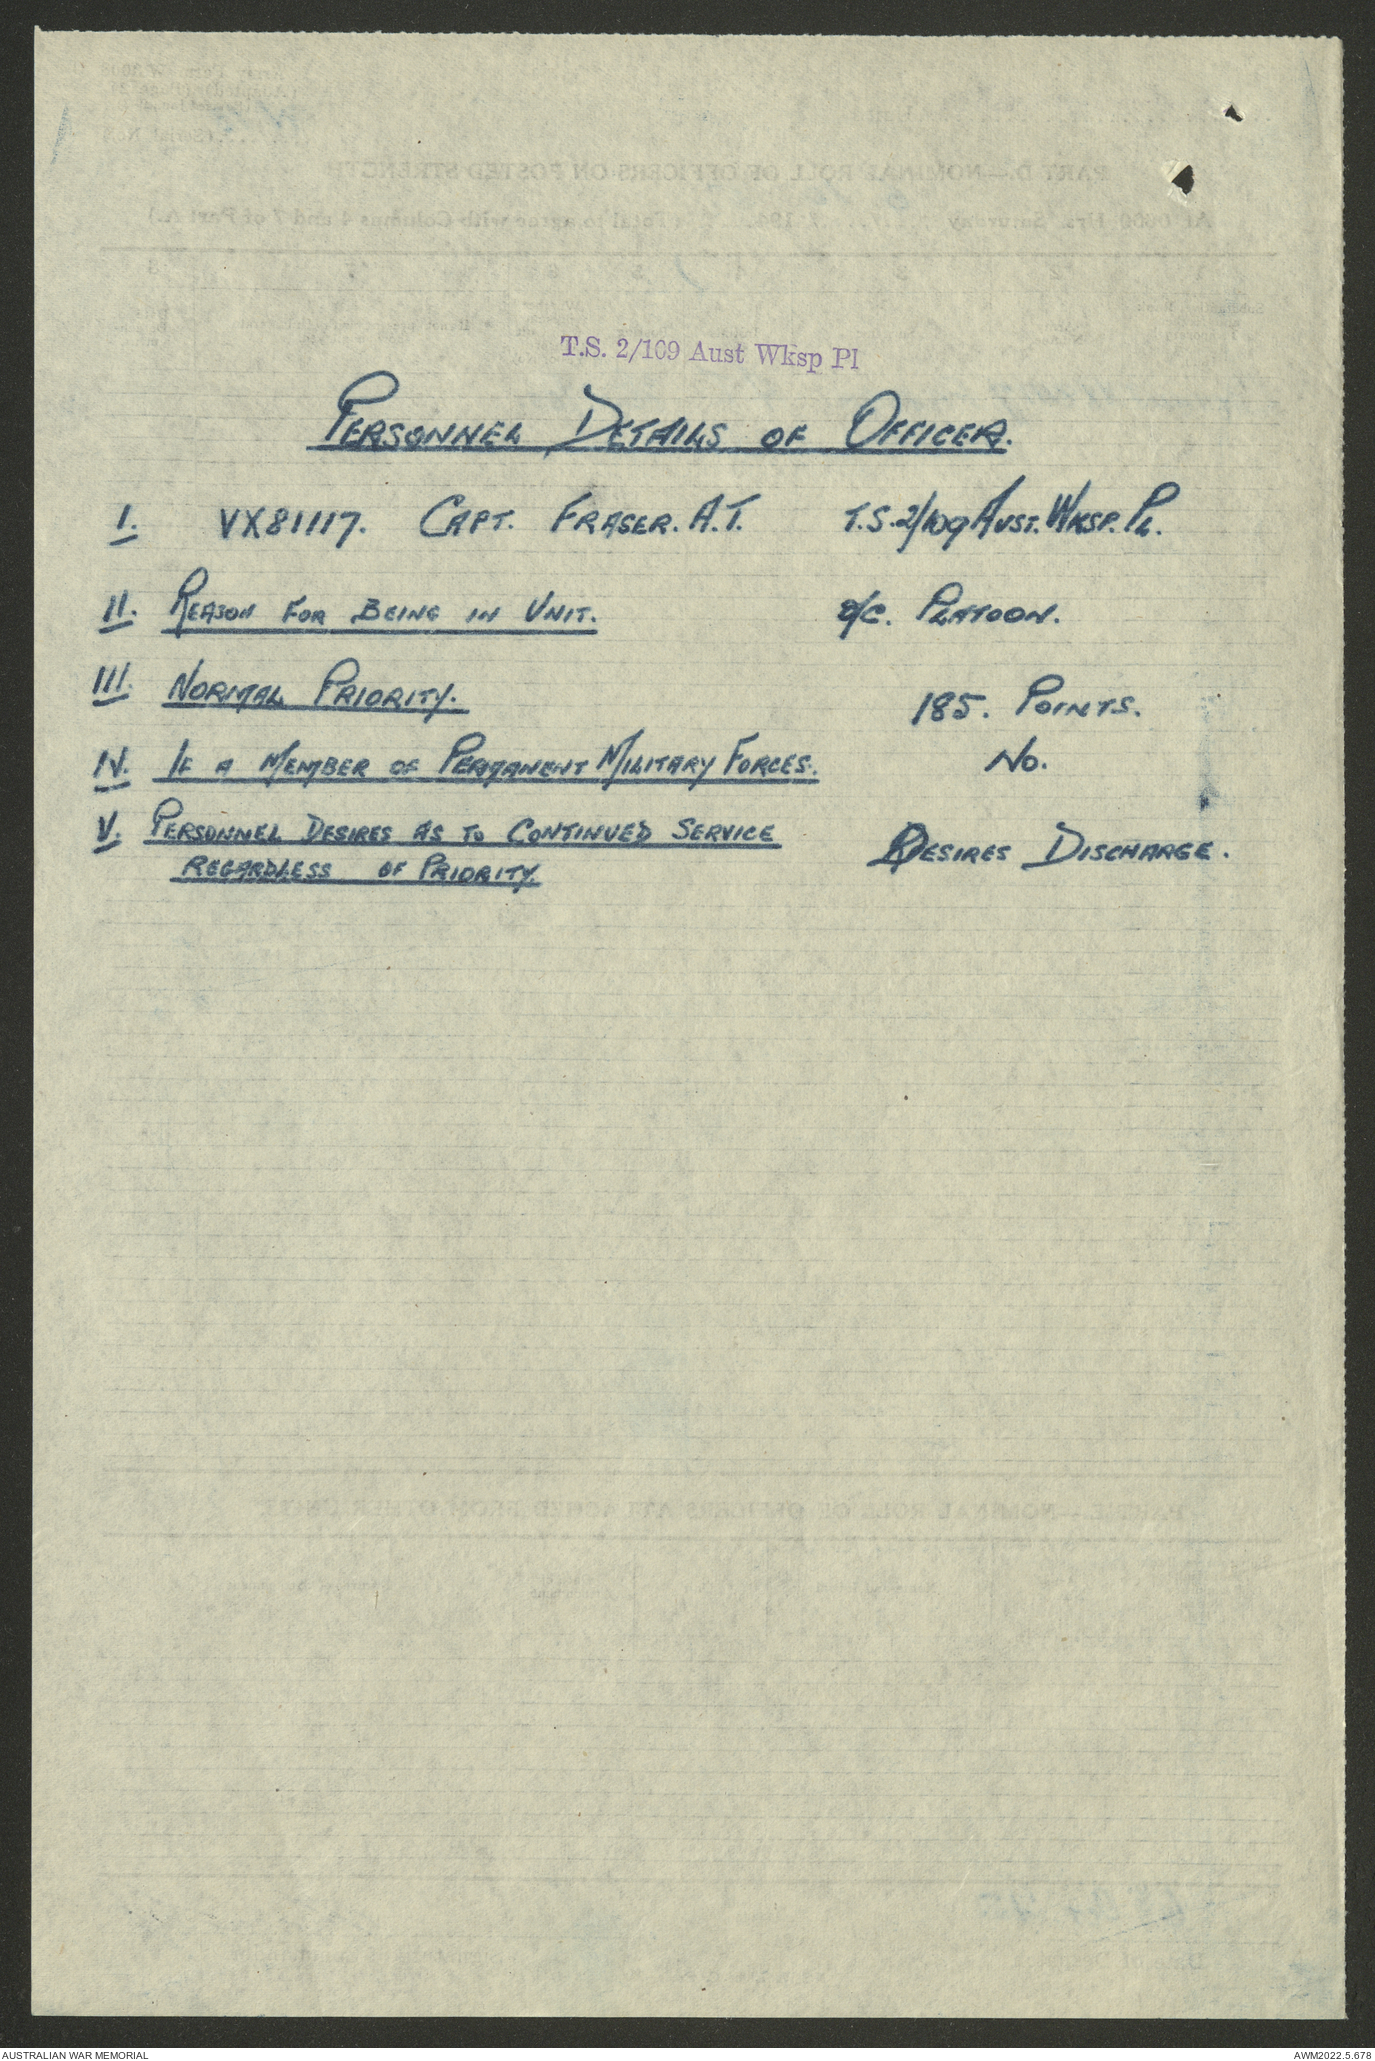 T.S. 2/109 Aust Wksp Pl
PERSONNEL DETAILS OF OFFICER.
I. VX81117. CAPT. FRASER. A.T. T.S. 2/109 AUST. WKSP. PL.
II. REASON FOR BEING IN UNIT. O/C. PLATOON.
III. NORMAL PRIORITY. 185. POINTS.
IV. IF A MEMBER OF PERMANENT MILITARY FORCES. NO.
V. PERSONNEL DESIRES AS TO CONTINUED SERVICE
REGARDLESS OF PRIORITY. DESIRES DISCHARGE.
PART D.—NOMINAL ROLL OF OFFICERS ON POSTED STRENGTH
AUSTRALIAN WAR MEMORIAL AWM2022.5.678